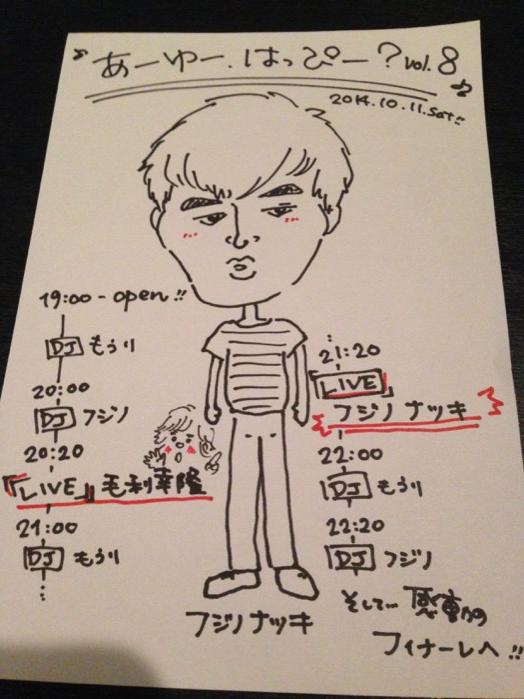 あーゆー.はっぴー?vol.8
2014.10.11.sat!!
19:00-open!!
DJ もうり
20:00
DJ フジノ
20:20
『LIVE』毛利幸隆
21:00
DJ もうり
21:20
『LIVE』
フジノナツキ
22:00
DJ もうり
22:20
DJ フジノ
そして…感動の
フィナーレへ!!
フジノナツキ